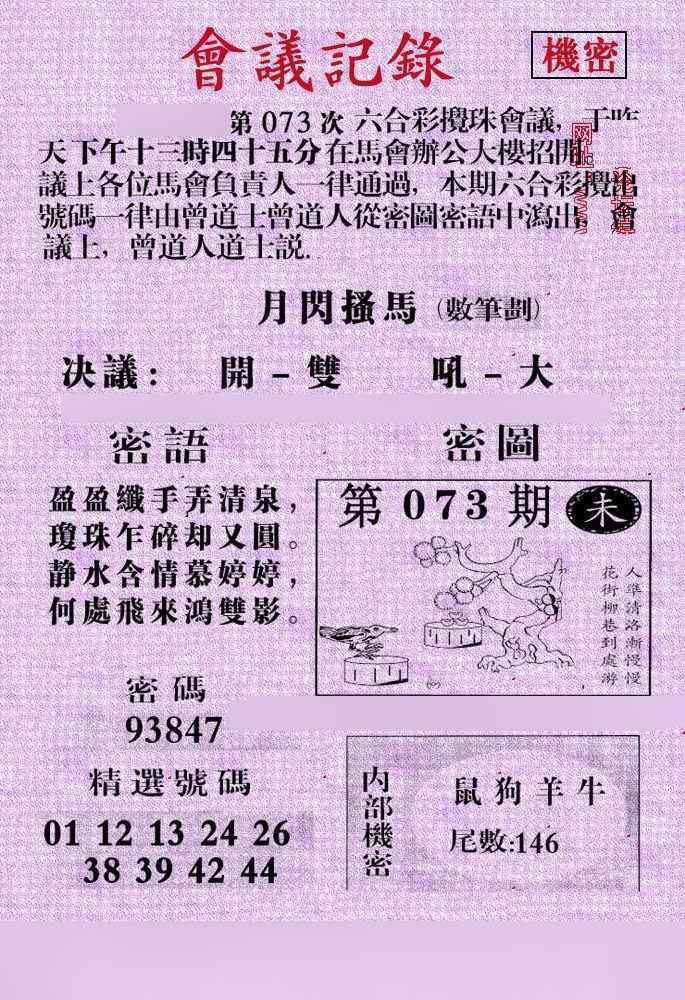 會議記錄
機密
第 073 次 六合彩攪珠會議，于昨
天下午十三時四十五分在馬會辦公大樓招開
議上各位馬會負責人一律通過，本期六合彩攪出
號碼一律由曾道士曾道人從密圖密語中瀉出 會
議上，曾道人道士説.
月閃搔馬（數筆劃）
决議： 開－雙 吼－大
密語
盈盈纖手弄清泉，
瓊珠乍碎却又圓。
静水含情慕婷婷，
何處飛來鴻雙影。
密圖
第 073 期 未
人準清洛漸慢慢
花街柳巷到處游
密碼
93847
精選號碼
01 12 13 24 26
38 39 42 44
内部機密
鼠狗羊牛
尾數:146